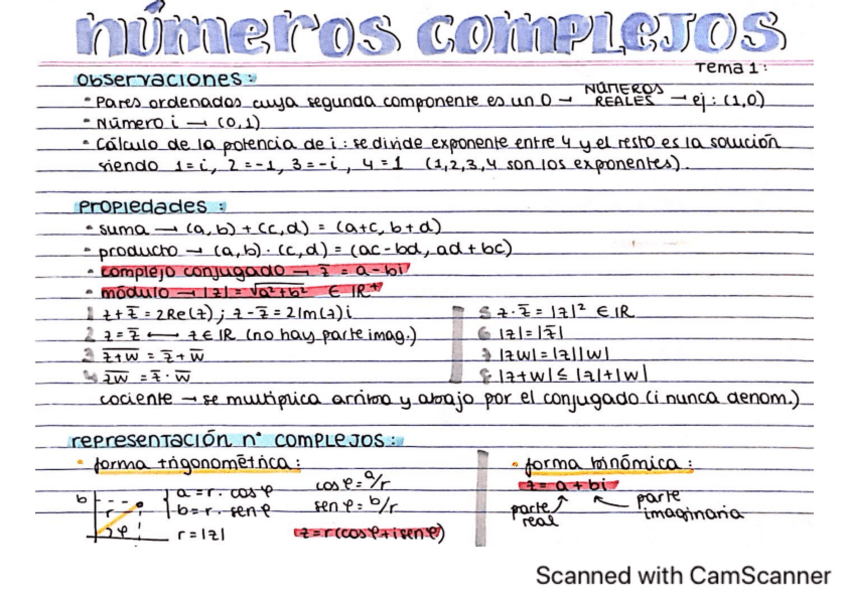 números complejos
Tema 1:
observaciones:
- Pares ordenados cuya segunda componente es un 0 → NÚMEROS REALES → ej: (1,0)
- Número i → (0,1)
- Cálculo de la potencia de i: se divide exponente entre 4 y el resto es la solución
siendo 1=i, 2=-1, 3=-i, 4=1 (1,2,3,4 son los exponentes).
propiedades:
- suma → (a,b) + (c,d) = (a+c, b+d)
- producto → (a,b) · (c,d) = (ac-bd, ad+bc)
- complejo conjugado → z̅ = a-bi
- módulo → |z| = √a²+b² ∈ IR⁺
1 z+z̅ = 2Re(z); z-z̅ = 2Im(z)i
2 z=z̅ ⟷ z∈IR (no hay parte imag.)
3 z̅+̅w̅ = z̅+w̅
4 z̅w̅ = z̅·w̅
5 z·z̅ = |z|² ∈ IR
6 |z|=|z̅|
7 |zw|=|z||w|
8 |z+w|≤|z|+|w|
cociente → se multiplica arriba y abajo por el conjugado (i nunca denom.)
representación nº complejos:
- forma trigonométrica:
b
r
φ
a = r · cos φ
b = r · sen φ
r = |z|
cos φ = a/r
sen φ = b/r
z = r(cos φ + i sen φ)
- forma binómica:
z = a + bi
parte real
parte imaginaria
Scanned with CamScanner